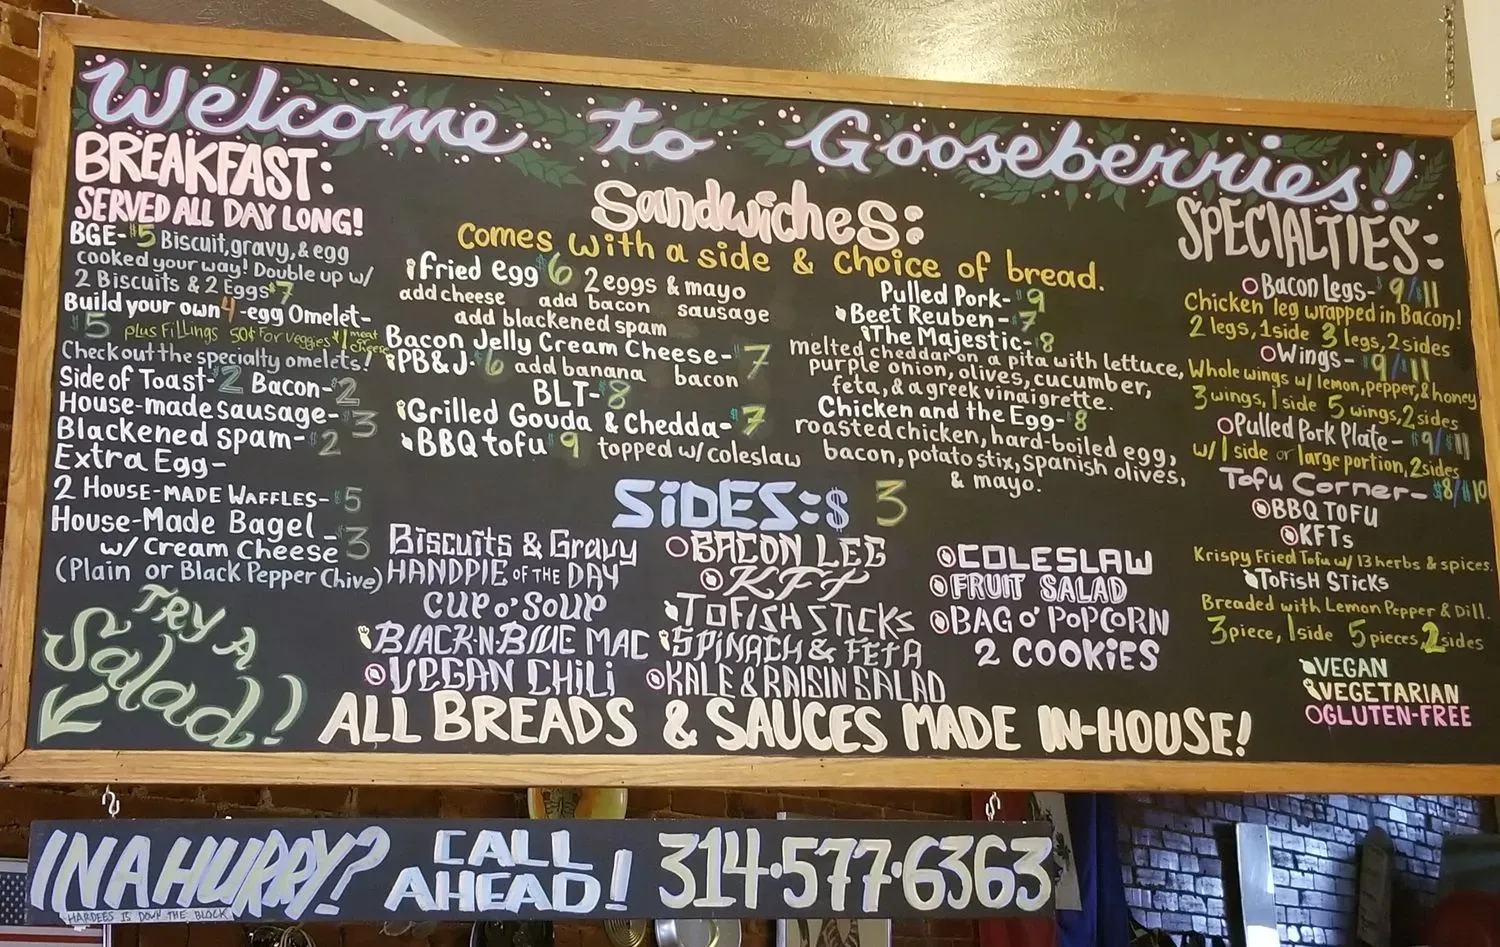 Welcome to Gooseberries!
BREAKFAST:
SERVED ALL DAY LONG!
BGE- $5 Biscuit, gravy, & egg
cooked your way! Double up w/
2 Biscuits & 2 Eggs $7
Build your own 4-egg Omelet-
$5 plus Fillings 50¢ For veggies $1 meat cheese
Check out the specialty omelets!
Side of Toast- $2 Bacon- $2
House-made sausage- $3
Blackened spam- $2
Extra Egg-
2 HOUSE-MADE WAFFLES- $5
House-Made Bagel - $3
w/ Cream Cheese
(Plain or Black Pepper Chive)
TRY A
Salad!
Sandwiches:
Comes with a side & choice of bread.
Fried egg $6 2 eggs & mayo
add cheese add bacon sausage
add blackened spam
Bacon Jelly Cream Cheese- $7
PB&J- $6 add banana bacon
BLT- $8
Grilled Gouda & Chedda- $7
BBQ tofu $9 topped w/ coleslaw
Pulled Pork- $9
Beet Reuben- $7
The Majestic- $8
melted cheddar on a pita with lettuce,
purple onion, olives, cucumber,
feta, & a greek vinaigrette.
Chicken and the Egg- $8
roasted chicken, hard-boiled egg,
bacon, potato stix, spanish olives,
& mayo.
SIDES: $3
BISCUITS & GRAVY
HANDPIE OF THE DAY
CUP O' SOUP
BLACK-N-BLUE MAC
VEGAN CHILI
BACON LEG
KFT
TOFISH STICKS
SPINACH & FETA
KALE & RAISIN SALAD
COLESLAW
FRUIT SALAD
BAG O' POPCORN
2 COOKIES
SPECIALTIES:
Bacon Legs- $9/$11
Chicken leg wrapped in Bacon!
2 legs, 1 side 3 legs, 2 sides
Wings- $9/$11
Whole wings w/ lemon, pepper, & honey
3 wings, 1 side 5 wings, 2 sides
Pulled Pork Plate- $9/$11
w/ 1 side or large portion, 2 sides
Tofu Corner- $8/$10
BBQ TOFU
KFTs
Krispy Fried Tofu w/ 13 herbs & spices.
TOFISH STICKS
Breaded with Lemon Pepper & Dill.
3 piece, 1 side 5 pieces, 2 sides
VEGAN
VEGETARIAN
GLUTEN-FREE
ALL BREADS & SAUCES MADE IN-HOUSE!
IN A HURRY? CALL AHEAD! 314-577-6363
HARDEES IS DOWN THE BLOCK